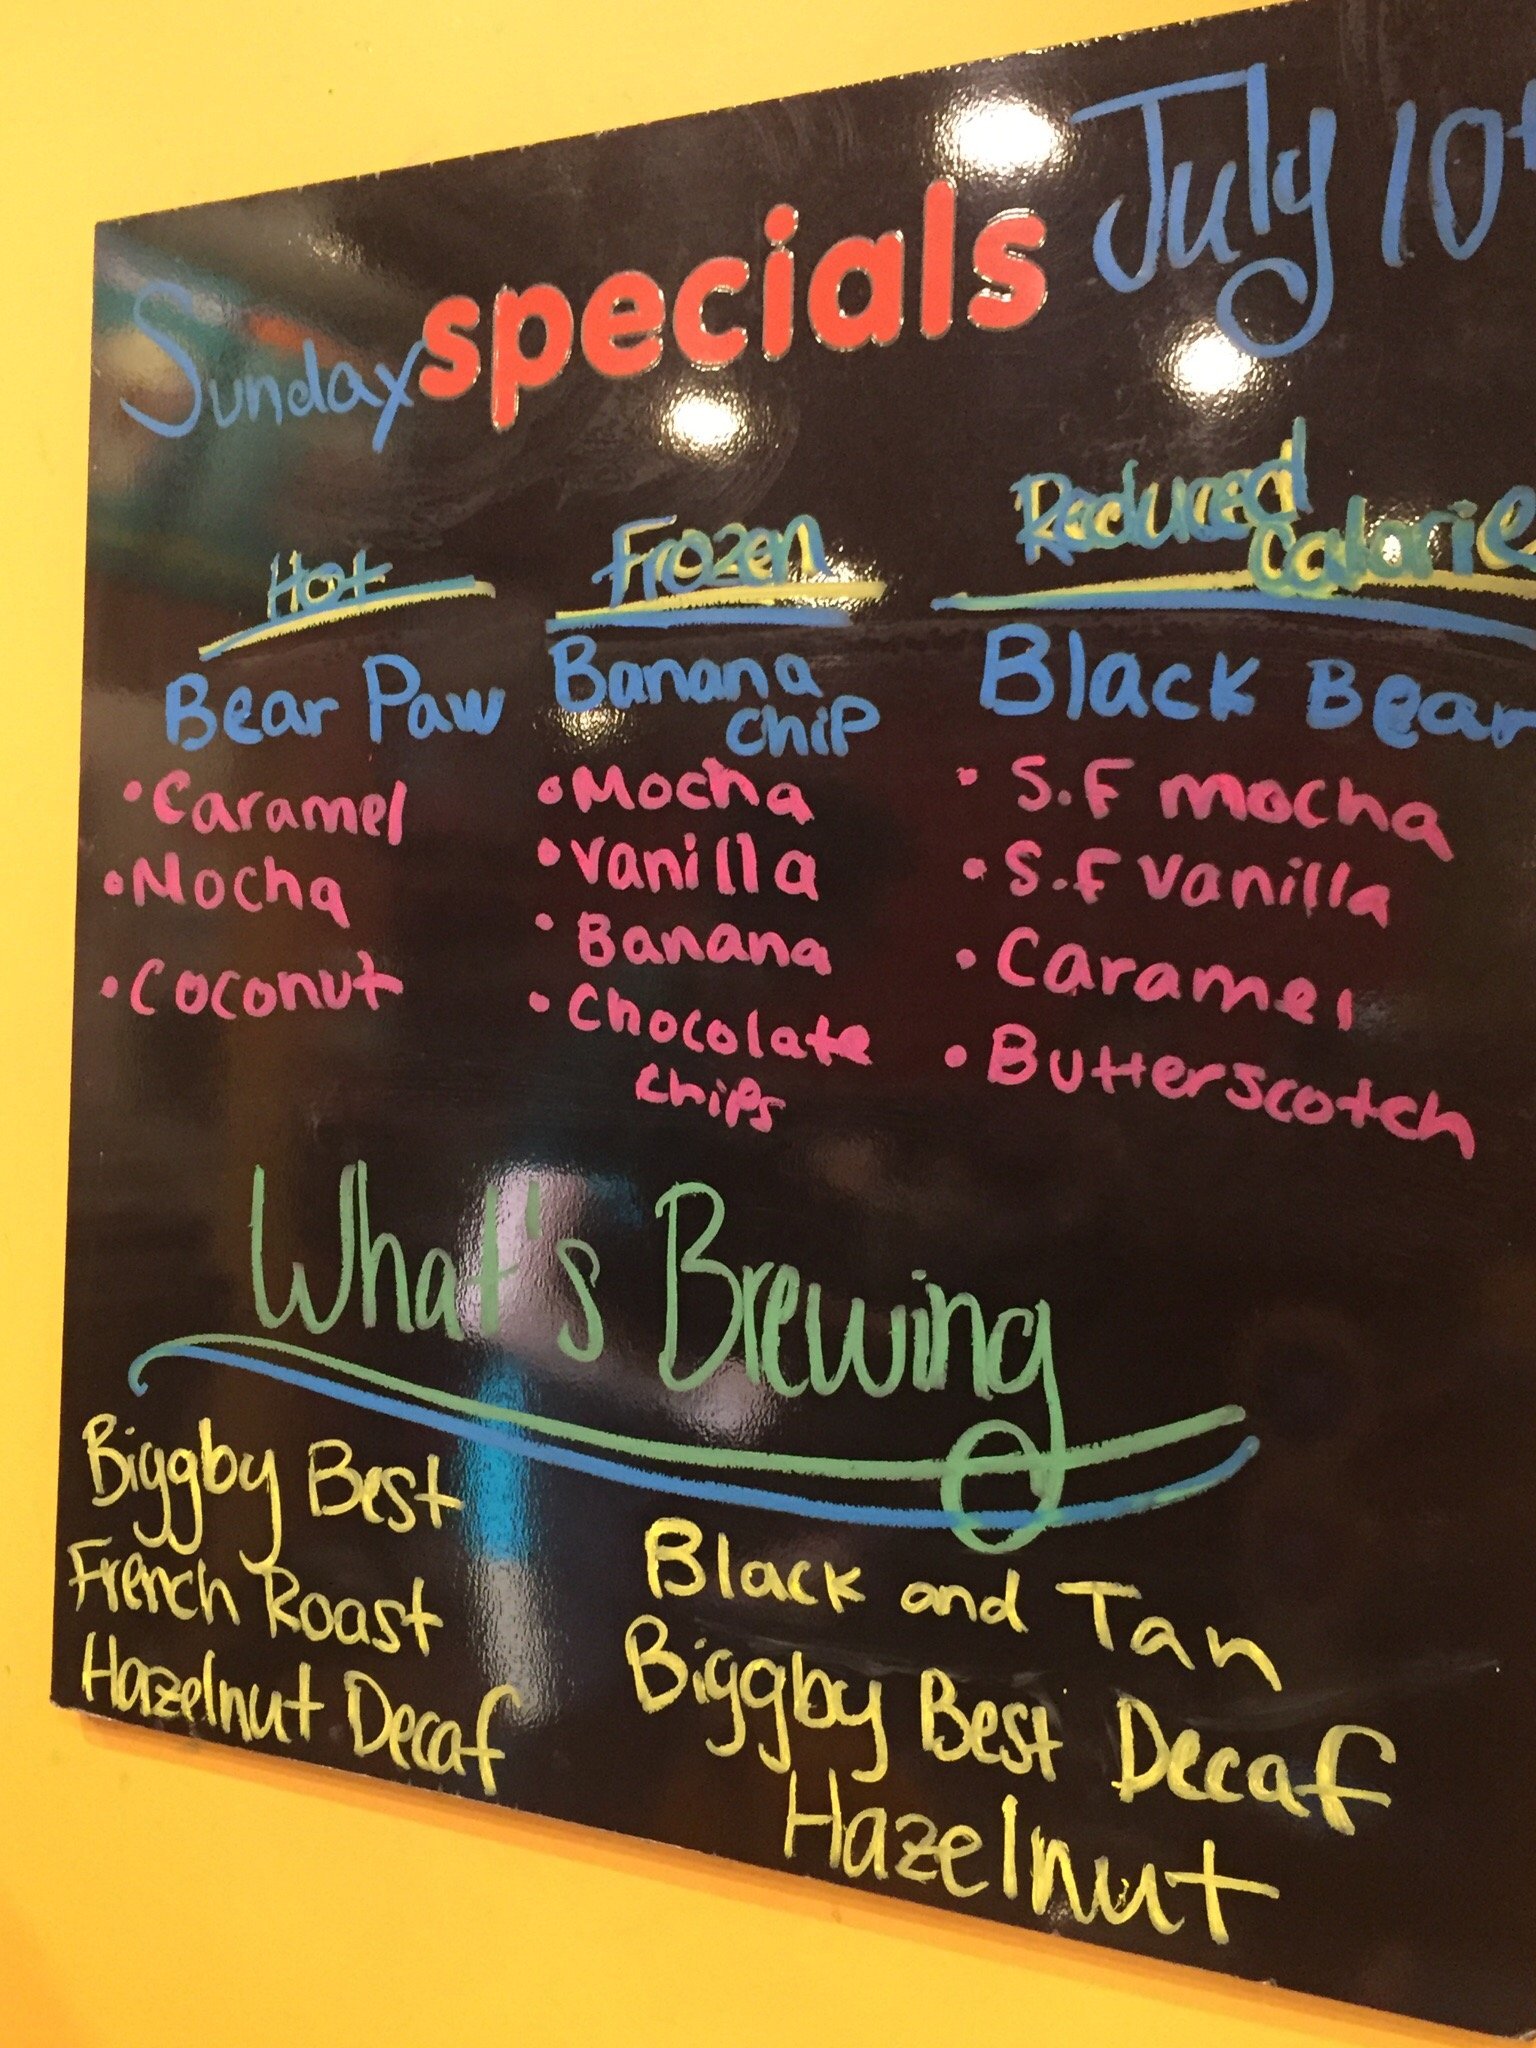 Sunday specials July 10
Hot
Bear Paw
• Caramel
• Mocha
• Coconut
Frozen
Banana
Chip
• Mocha
• Vanilla
• Banana
• Chocolate
Chips
Reduced
Calorie
Black Bear
• S.F mocha
• S.F Vanilla
• Caramel
• Butterscotch
What's Brewing
Biggby Best
French Roast
Hazelnut Decaf
Black and Tan
Biggby Best Decaf
Hazelnut